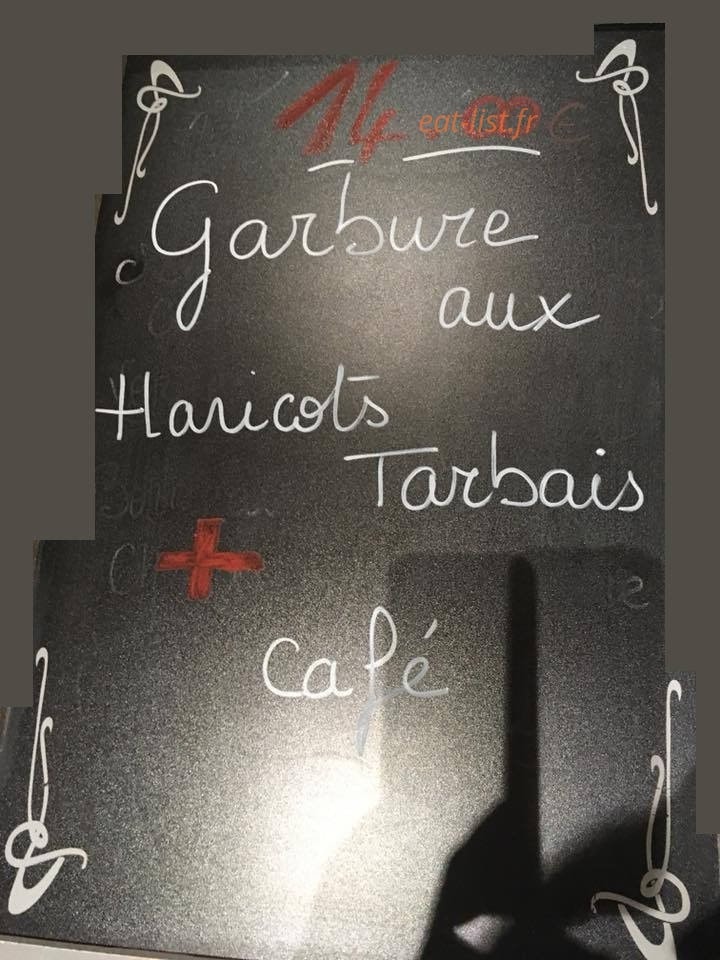 14 €
eat-list.fr
Garbure
aux
Haricots
Tarbais
+
Café